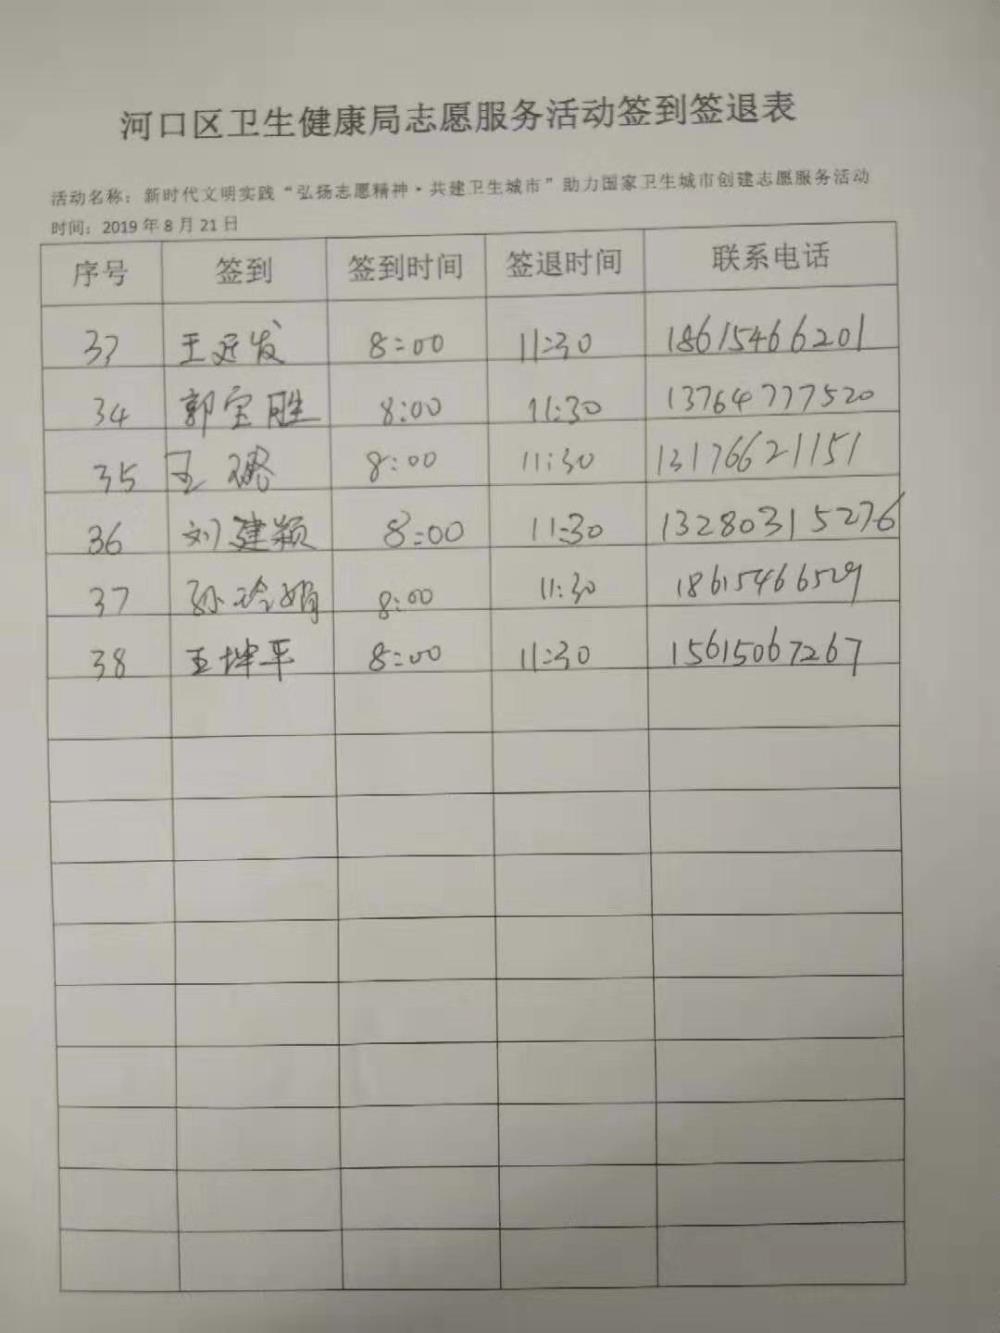 河口区卫生健康局志愿服务活动签到签退表
活动名称：新时代文明实践“弘扬志愿精神·共建卫生城市”助力国家卫生城市创建志愿服务活动
时间：2019年8月21日
序号 签到 签到时间 签退时间 联系电话
33 王延发 8:00 11:30 18615466201
34 郭宝胜 8:00 11:30 13764777520
35 王璐 8:00 11:30 13176621151
36 刘建颖 8:00 11:30 13280315276
37 孙玲娟 8:00 11:30 18615466529
38 王坤平 8:00 11:30 15615067267